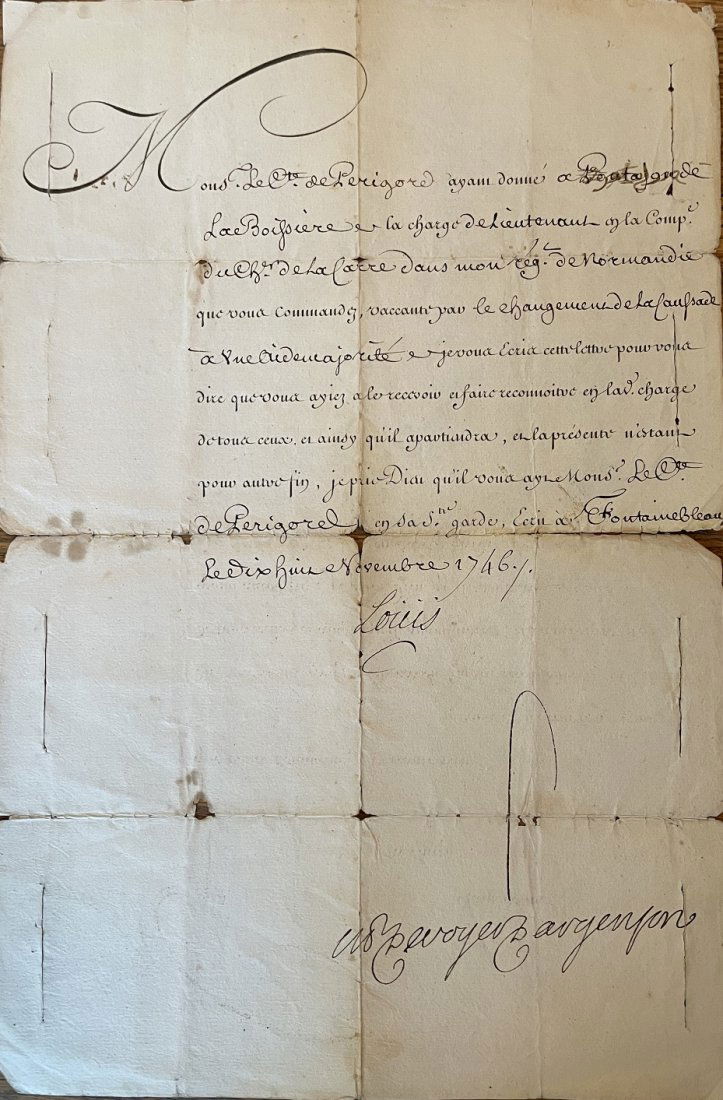 Mons.r Le C.te de Perigord ayant donné a de
La Boissiere la charge de Lieutenant en la Comp.e
du Ch.er de La Carre dans mon rég.t de Normandie
que vous Commandez, vaccante par le changement de La Caussade
a Une Aidemajorité je vous Ecris cette lettre pour vous
dire que vous ayiez a le recevoir et faire reconnoitre en lad.e charge
de tous ceux, et ainsy qu'il apartiendra, et la présente n'estant
pour autre fin, je prie Dieu qu'il vous ayt Mons.r Le C.te
de Perigord en sa S.te garde, Ecrit à Fontainebleau
Le dix huit Novembre 1746 ./.
Louis
M P De voyer D'argenson